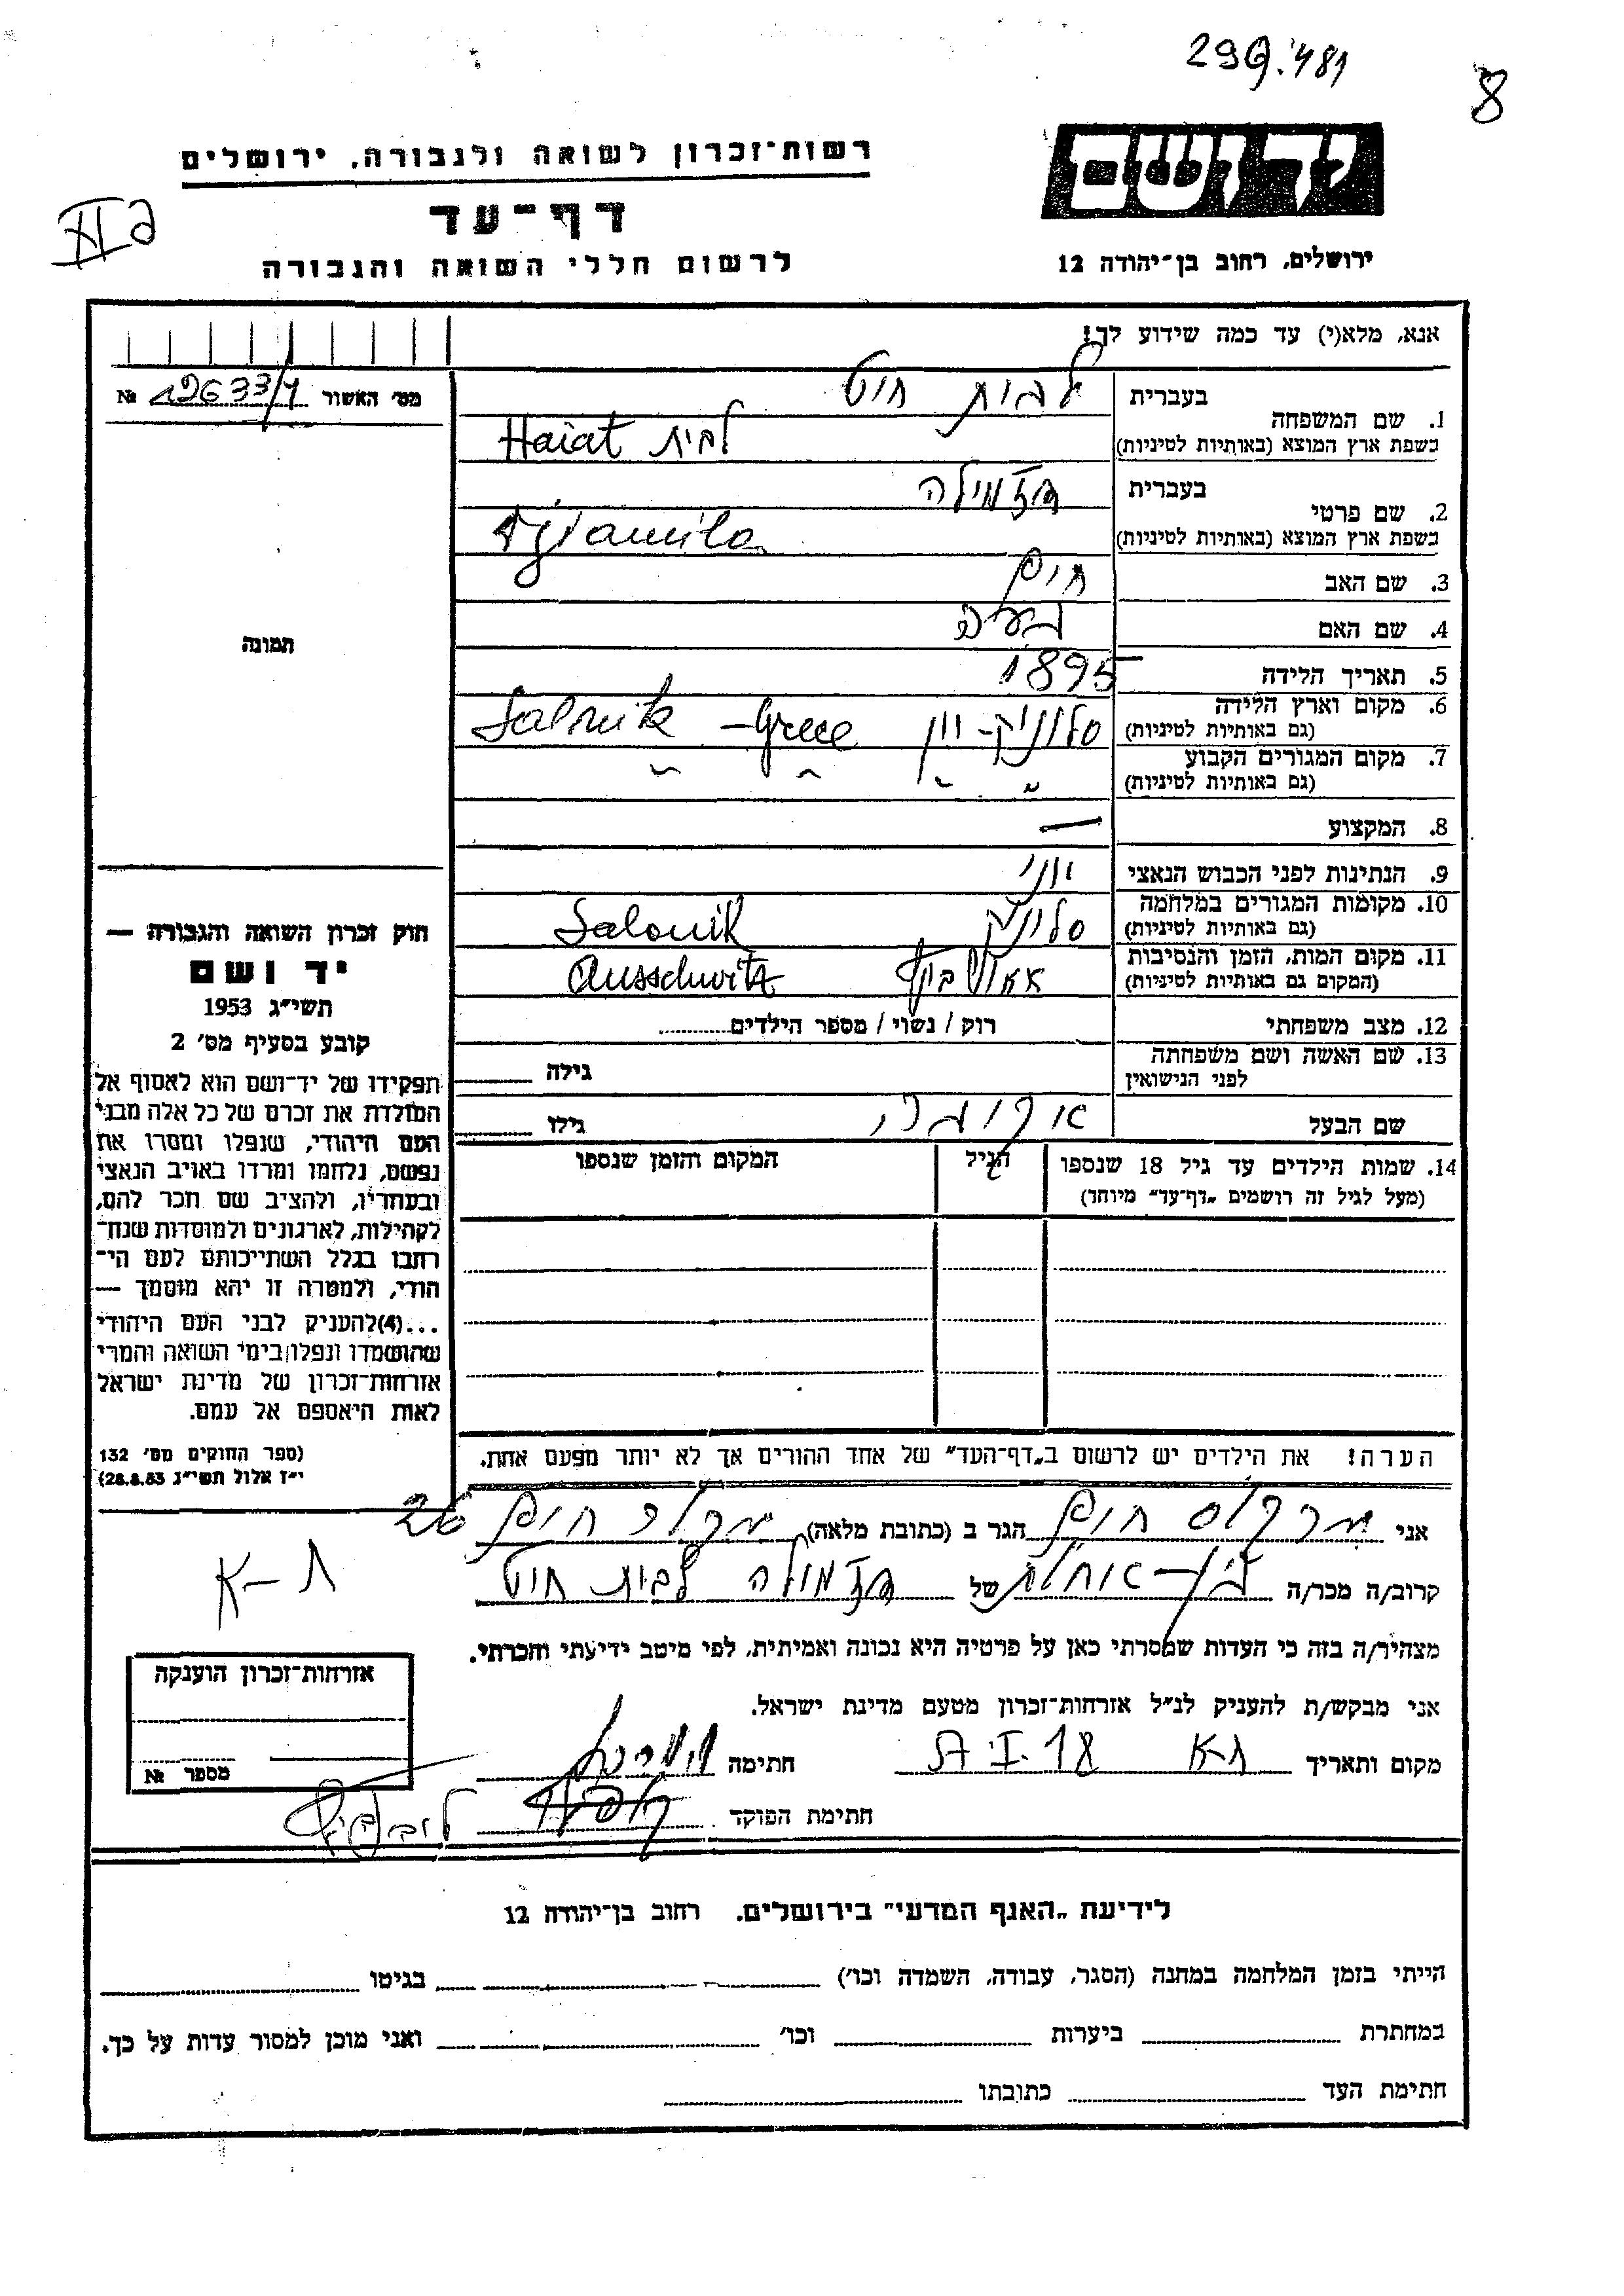 299.481
8
יד ושם
רשות־זכרון לשואה ולגבורה, ירושלים
דף־עד
לרשום חללי השואה והגבורה
ירושלים, רחוב בן־יהודה 12
אנא, מלא(י) עד כמה שידוע לך!
מס׳ האשור 12633/4 №
1. שם המשפחה
בעברית לבית חיט
בשפת ארץ המוצא (באותיות לטיניות) Haiat לבית
2. שם פרטי
בעברית
בשפת ארץ המוצא (באותיות לטיניות)
3. שם האב חיים
4. שם האם
5. תאריך הלידה 1895
6. מקום וארץ הלידה סלוניק - יון Salonik - Grece
(גם באותיות לטיניות)
7. מקום המגורים הקבוע
(גם באותיות לטיניות)
8. המקצוע —
9. הנתינות לפני הכבוש הנאצי יוני
10. מקומות המגורים במלחמה סלוניק Salonik
(גם באותיות לטיניות)
11. מקום המות, הזמן והנסיבות Ausschwitz
(המקום גם באותיות לטיניות)
12. מצב משפחתי רוק / נשוי / מספר הילדים
13. שם האשה ושם משפחתה
לפני הנישואין גילה
שם הבעל גילו
14. שמות הילדים עד גיל 18 שנספו הגיל המקום והזמן שנספו
(מעל לגיל זה רושמים „דף־עד״ מיוחד)
הערה! את הילדים יש לרשום ב„דף־העד״ של אחד ההורים אך לא יותר מפעם אחת.
תמונה
חוק זכרון השואה והגבורה —
יד ושם
תשי״ג 1953
קובע בסעיף מס׳ 2
תפקידו של יד־ושם הוא לאסוף אל
המולדת את זכרם של כל אלה מבני
העם היהודי, שנפלו ומסרו את
נפשם, נלחמו ומרדו באויב הנאצי
ובעוזריו, ולהציב שם וזכר להם,
לקהילות, לארגונים ולמוסדות שנח־
רבו בגלל השתייכותם לעם הי־
הודי, ולמטרה זו יהא מוסמך —
...(4)להעניק לבני העם היהודי
שהושמדו ונפלו בימי השואה והמרי
אזרחות־זכרון של מדינת ישראל
לאות היאספם אל עמם.
(ספר החוקים מס׳ 132
י״ז אלול תשי״ג 28.8.53)
אני מרקוס חיים הגר ב (כתובת מלאה) חיים 26
ת-א
קרוב/ה מכר/ה בן-אחות של לבית חיט
מצהיר/ה בזה כי העדות שמסרתי כאן על פרטיה היא נכונה ואמיתית, לפי מיטב ידיעתי והכרתי.
אני מבקש/ת להעניק לנ״ל אזרחות־זכרון מטעם מדינת ישראל.
מקום ותאריך ת-א חתימה
חתימת הפוקד
אזרחות־זכרון הוענקה
מספר №
לידיעת „האגף המדעי״ בירושלים, רחוב בן־יהודה 12
הייתי בזמן המלחמה במחנה (הסגר, עבודה, השמדה וכו׳) בגיטו
במחתרת ביערות וכו׳ ואני מוכן למסור עדות על כך.
חתימת העד כתובתו